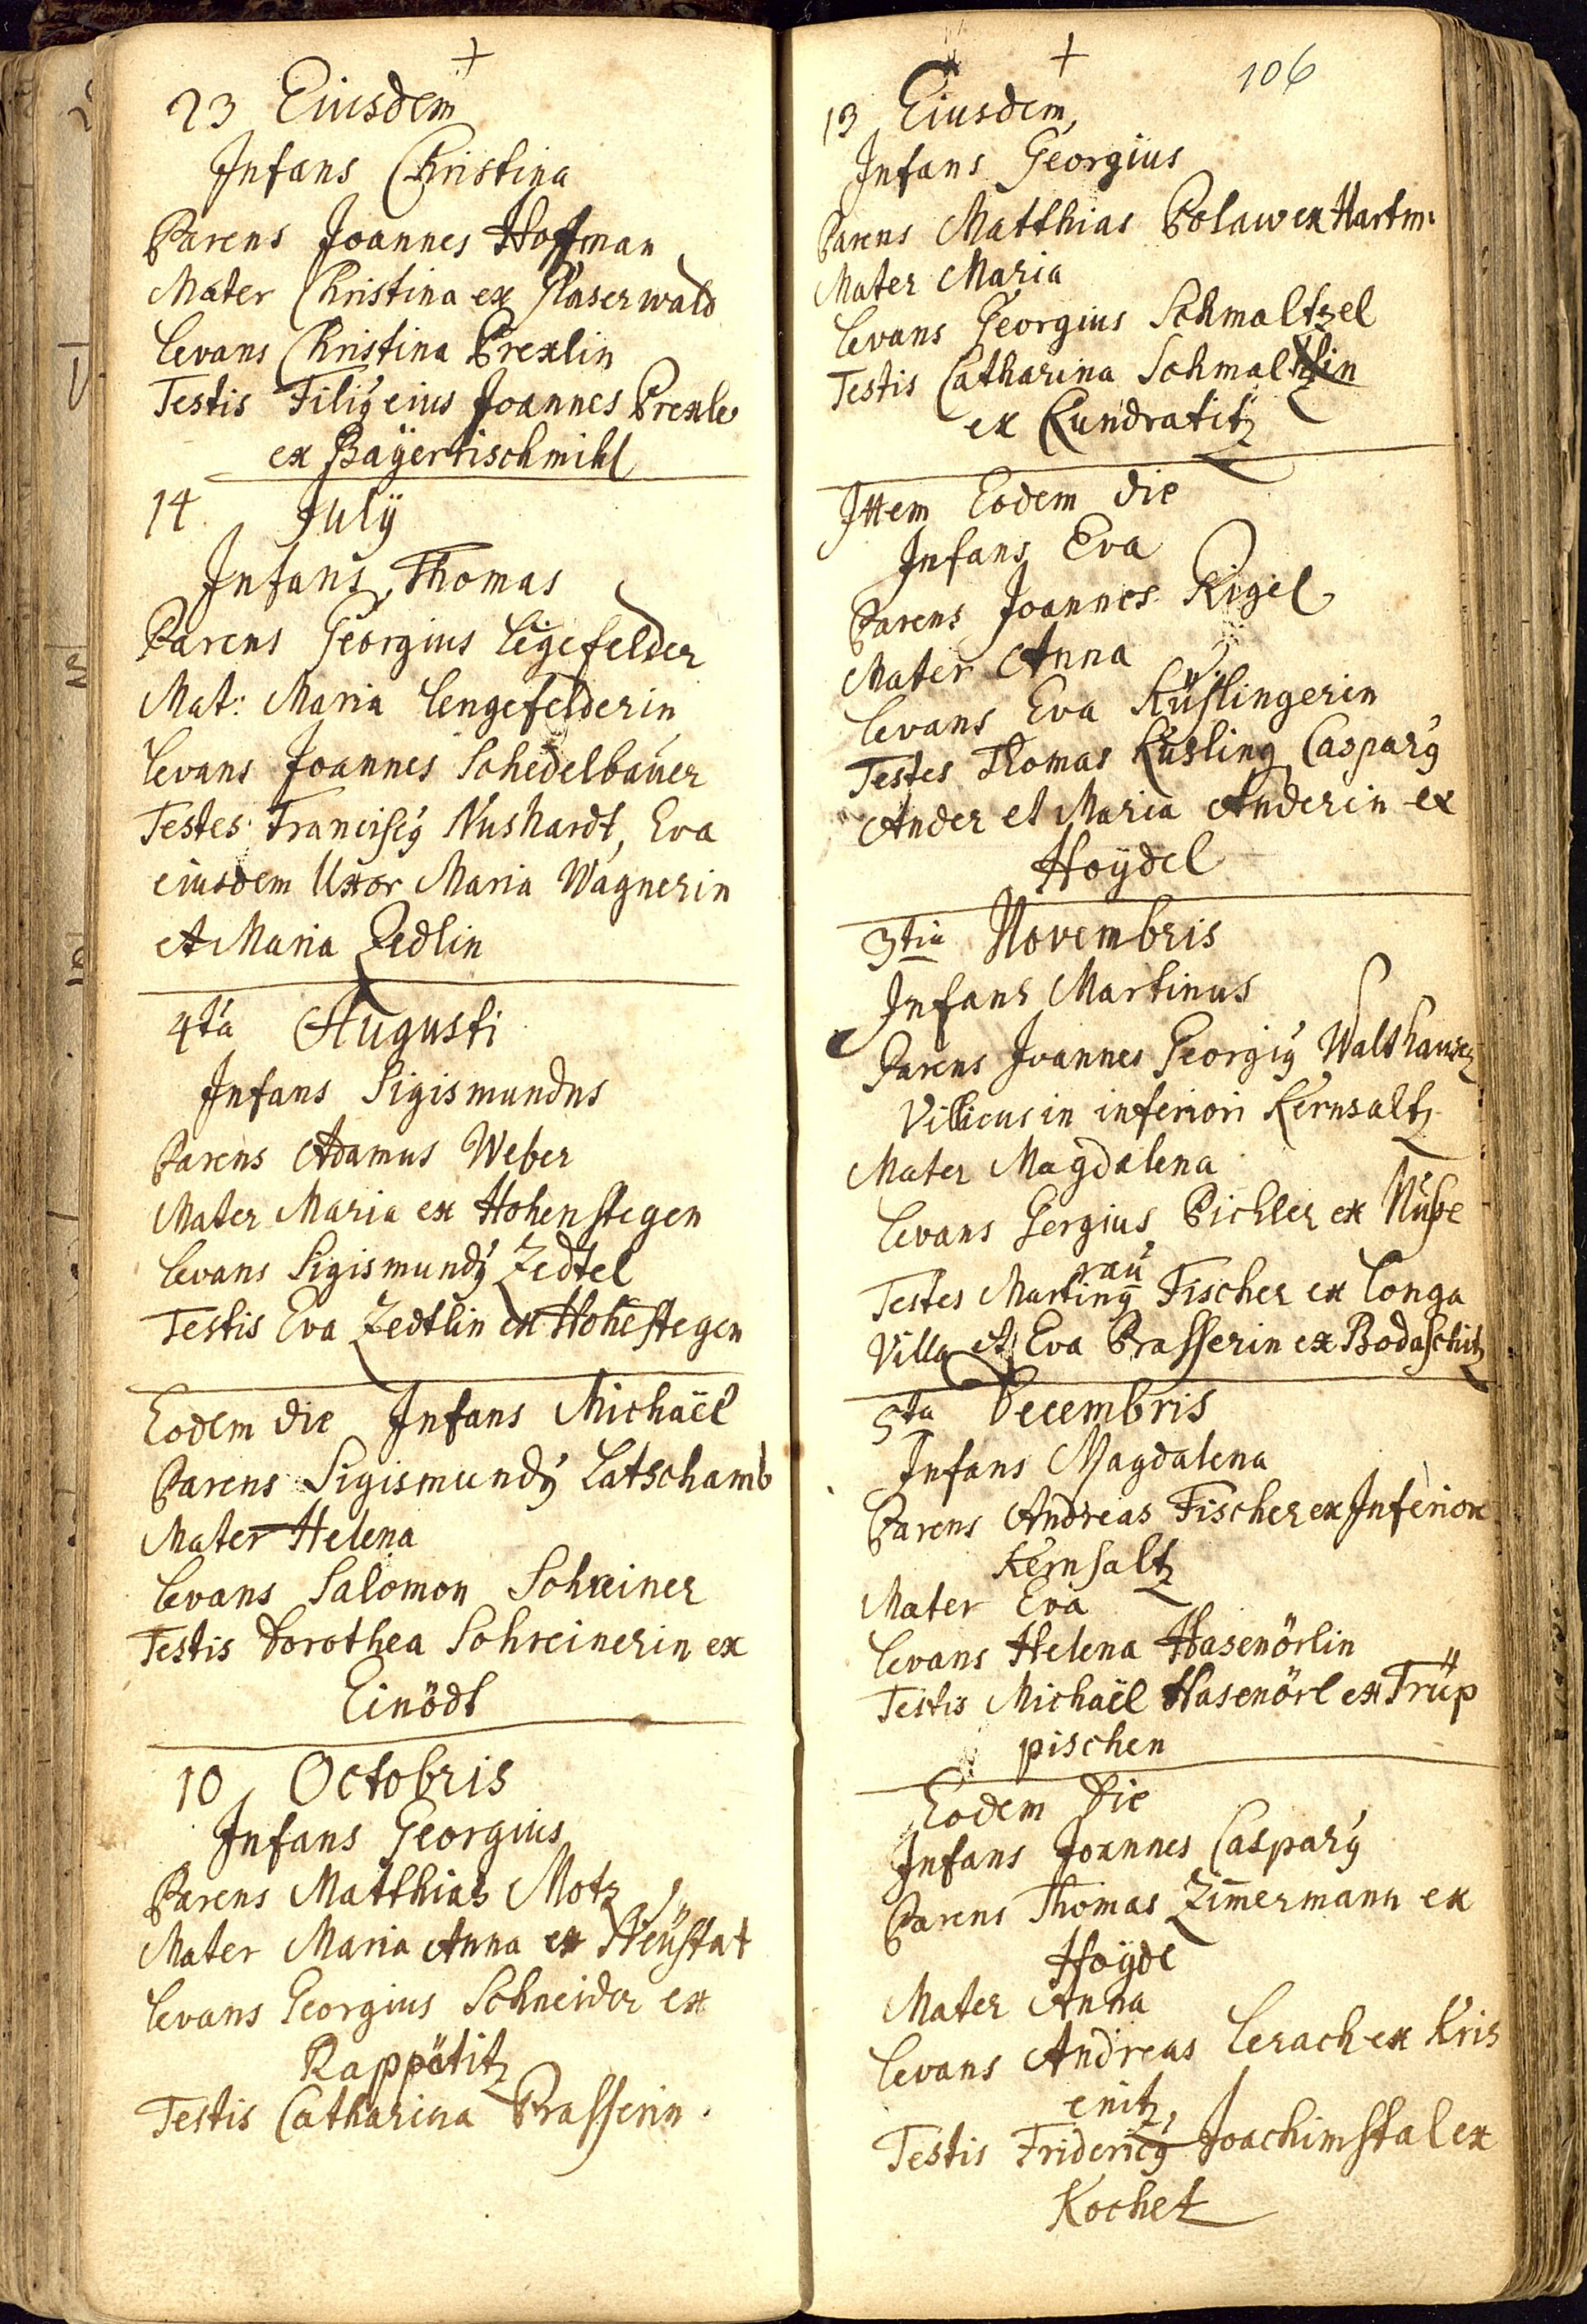 +
23 Eiusdem
Infans Christina
Parens Joannes Hoffman
Mater Christina ex Glaserwald
Levans Christina Prexlin
Testis Filiy eius Joannes Prexle
ex Bayerrischmihl
14 Julÿ
Infans Thomas
Parens Georgius Legefelder
Mat: Maria Lengefelderin
Levans Joannes Schedelbauer
Testes Franciscy Nushardt, Eva
eiusdem Uxor Maria Wagnerin
et Maria Zedlin
4ta Augusti
Infans Sigismundus
Parens Adamus Weber
Mater Maria ex Hohenstegen
Levans Sigismundy Zedtel
Testis Eva Zedtlin ex Hohēstegen
Eodem die Infans Michaël
Parens Sigismundy Latschamb
Mater Helena
Levans Salomon Schreiner
Testis Dorothea Schreinerin ex
Einödt
10 Octobris
Infans Georgius
Parens Matthias Motz
Mater Maria Anna ex Neustat
Levans Georgius Schneider ex
Rappötitz
Testis Catharina Prasserin.
+
106
13 Eiusdem,
Infans Georgius
Parens Matthias Polaw ex Hartm:
Mater Maria
Levans Georgius Schmaltzel
Testis Catharina Schmaltzlin
ex Kundratitz
Ittem Eodem die
Infans Eva
Parens Joannes Rigel
Mater Anna
Levans Eva Küslingerin
Testes Thomas Küsling Caspary
Ander et Maria Anderin ex
Hoÿdel
3tia Novembris
Infans Martinus
Parens Joannes Georgiy Walthauser
Villicus in inferiori Kernsaltz
Mater Magdalena
Levans Gergius Pichler ex Nuße
rau
Testes Martiny Fischer ex Longa
Villa et Eva Prasserin ex Bodaschitz
5ta Decembris
Infans Magdalena
Parens Andreas Fischer ex Inferiore
Kernsaltz
Mater Eva
Levans Helena Hasenörlin
Testis Michaël Hasenörl ex Trüp
pischen
Eodem die
Infans Joannes Caspary
Parens Thomas Zim̄ermann ex
Hoÿde
Mater Anna
Levans Andreas Lerach ex Kris
enitz,
Testis Fridericy Joachimstal ex
Kochet